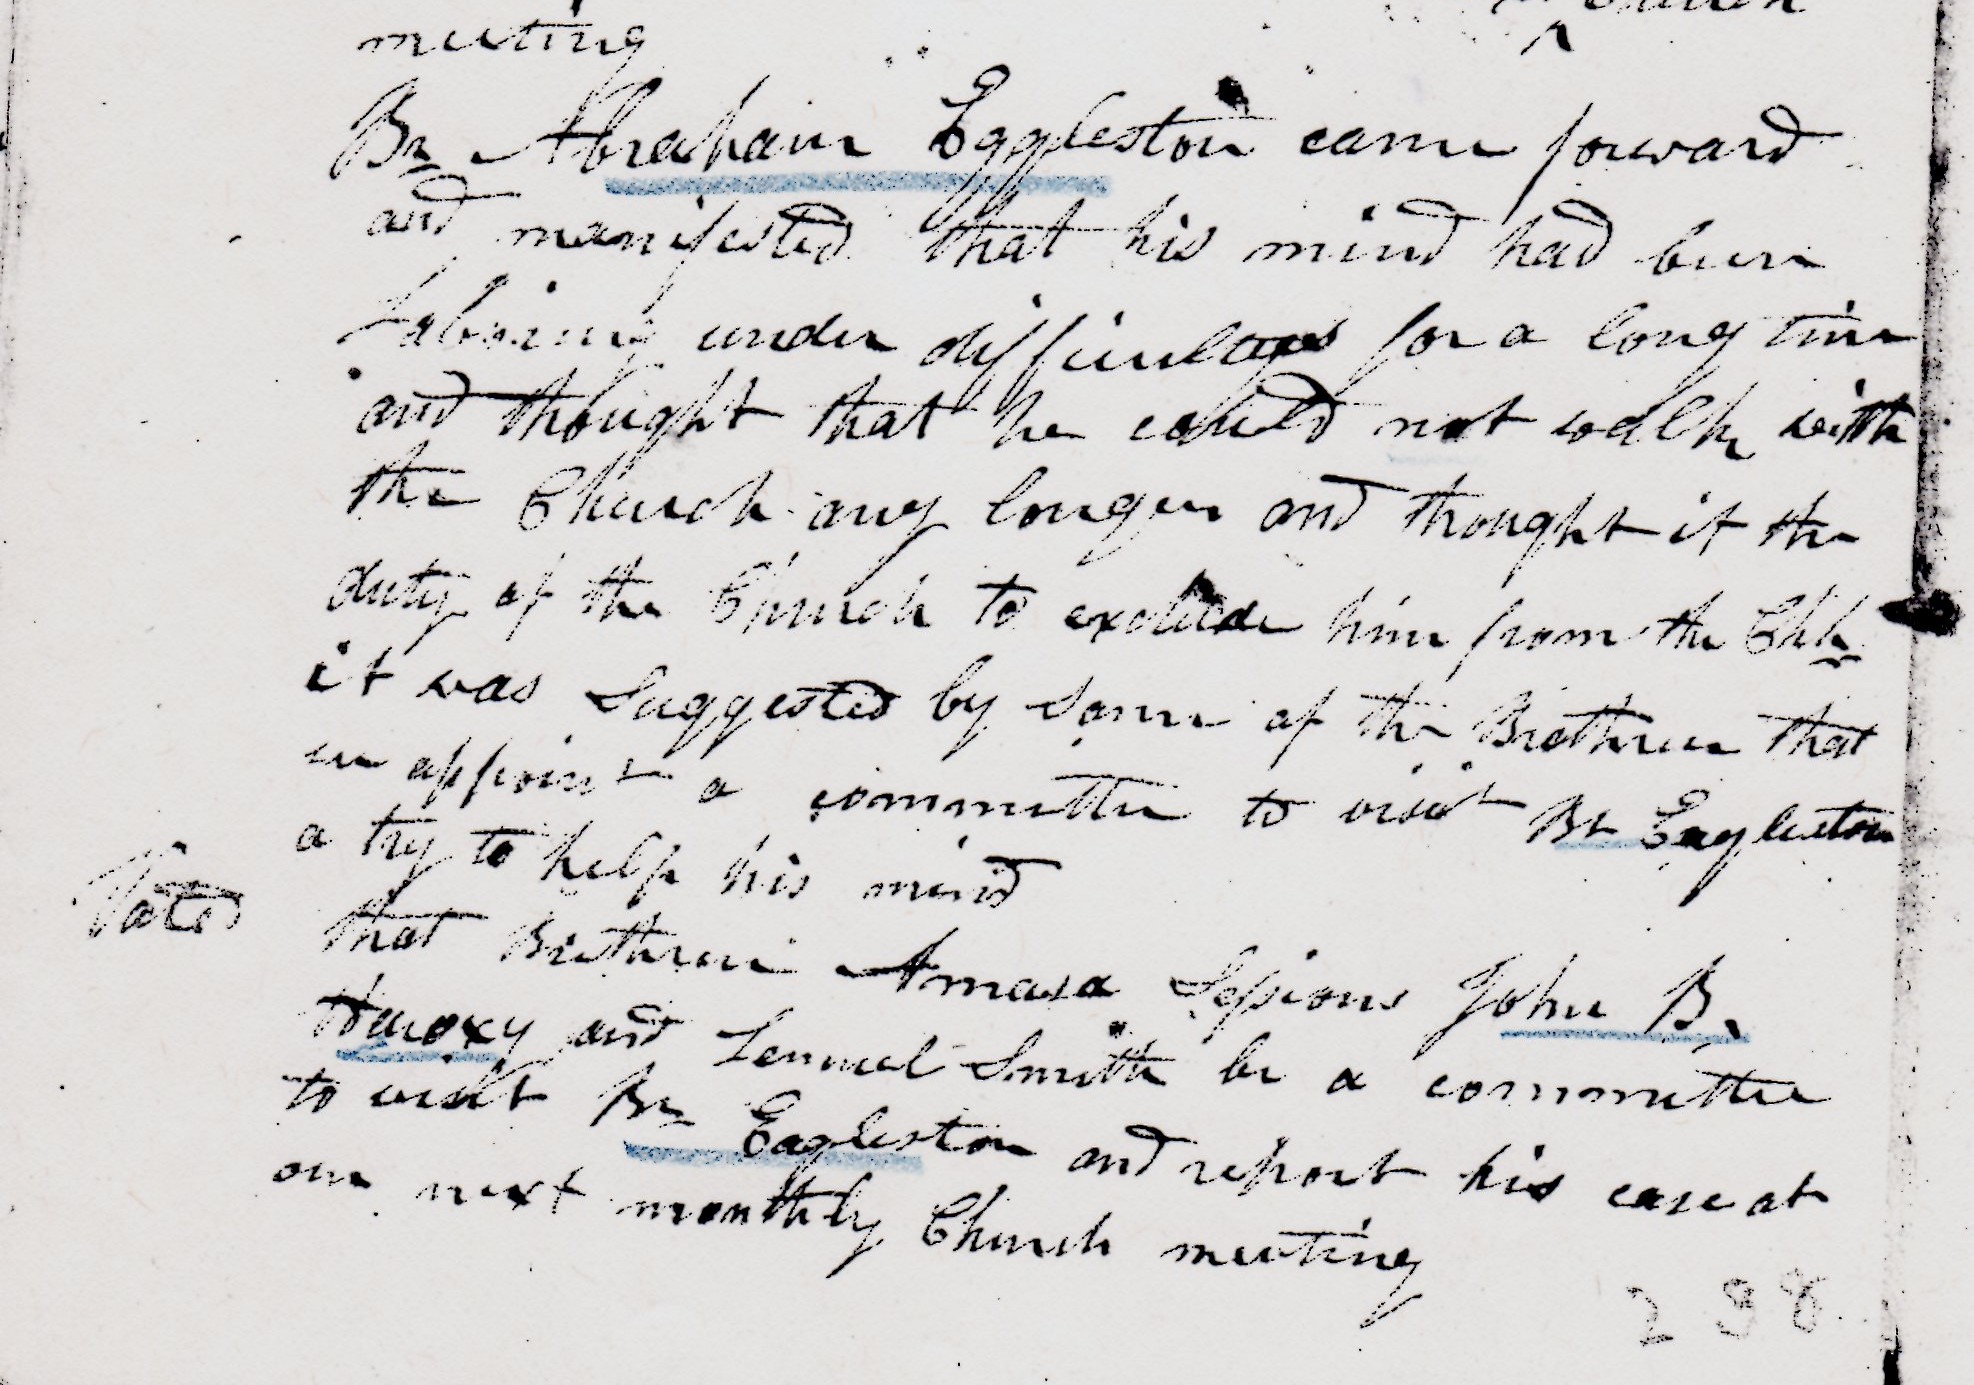 Church
meeting
Br Abraham Eggleston came forward
and manifested that his mind had been
Laboring under difficultys for a long time
and thought that he could not walk with
the Church any longer and thought it the
duty of the Church to exclude him from the Chh
it was Suggested by Some of the Brethren that
we appoint a committee to visit Br Eagleston
a try to help his mind
Voted that Brethren Amasa Sessions John B.
and Lemuel Smith be a committee
to visit Br Eagleston and report his case at
our next monthly Church meeting
298